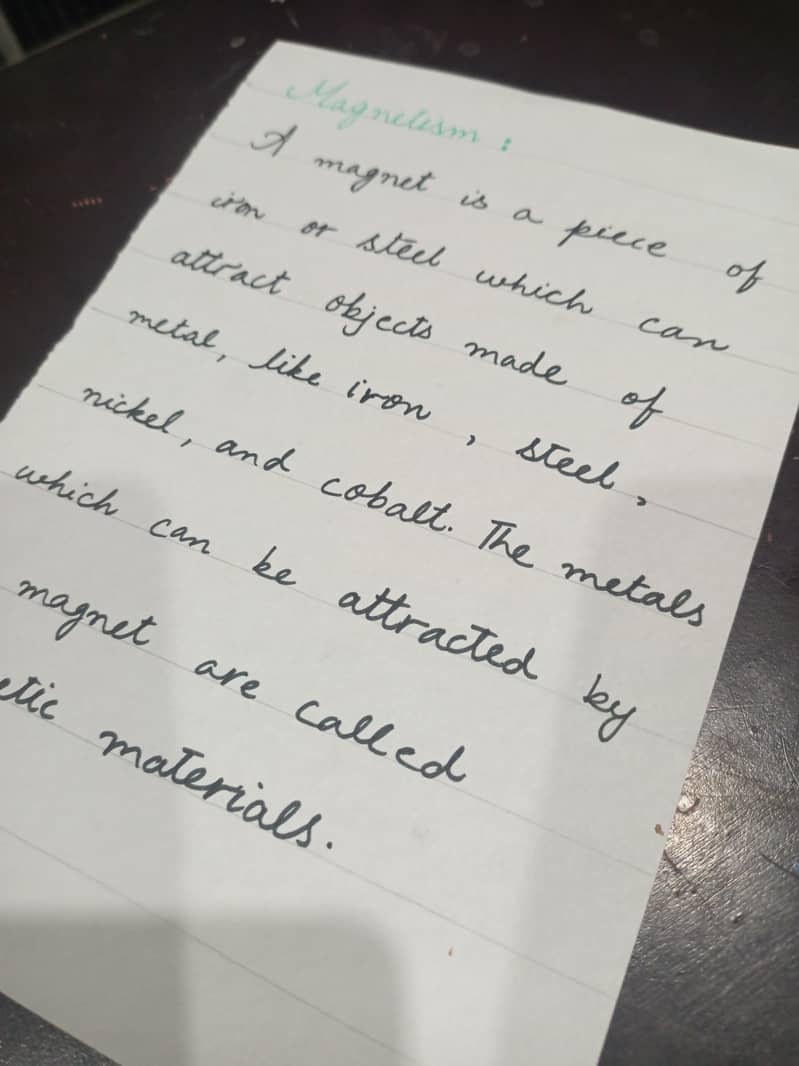 Magnetism :
A magnet is a piece of
iron or steel which can
attract objects made of
metal, like iron, steel,
nickel, and cobalt. The metals
which can be attracted by
magnet are called
etic materials.